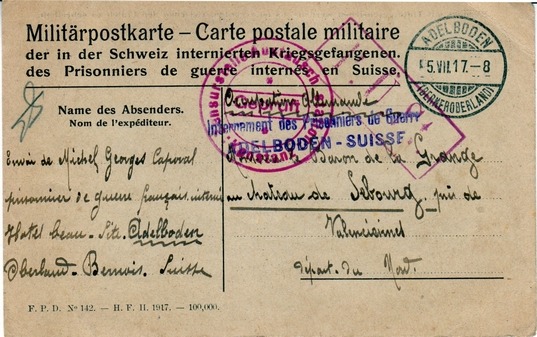 Militärpostkarte – Carte postale militaire
der in der Schweiz internierten Kriegsgefangenen.
des Prisonniers de guerre internés en Suisse.
ADELBODEN
5.VII.17.-8
(BERNEROBERLAND)
Name des Absenders.
Nom de l'expéditeur.
Occupation Allemande
Internement des Prisonniers de Guerre
ADELBODEN - SUISSE
Envoi de Michel Georges Caporal
prisonnier de guerre français interné
Hotel Beau-Site Adelboden
Oberland-Bernois. Suisse
le Baron de La Grange
au Chateau de Sebourg près de
Valenciennes
départ. du Nord.
F. P. D. Nº 142. – H. F. II. 1917. – 100,000.